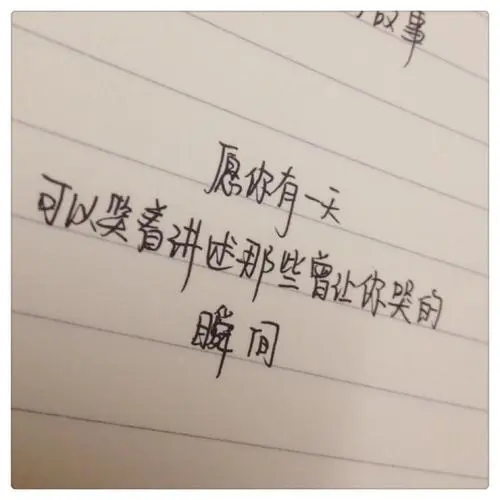 故事
愿你有一天
可以哭着讲述那些曾让你哭的
瞬间